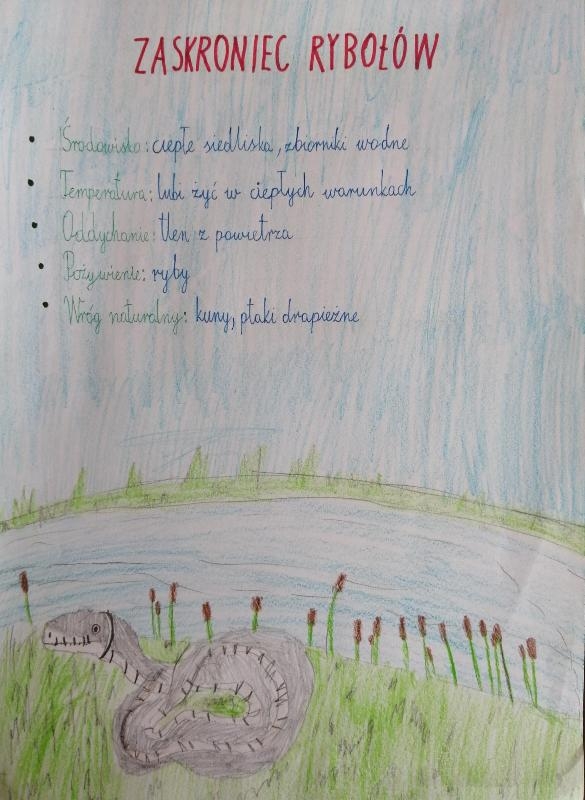 ZASKRONIEC RYBOŁÓW
• Środowisko: ciepłe siedliska, zbiorniki wodne
• Temperatura: lubi żyć w ciepłych warunkach
• Oddychanie: tlen z powietrza
• Pożywienie: ryby
• Wróg naturalny: kuny, ptaki drapieżne